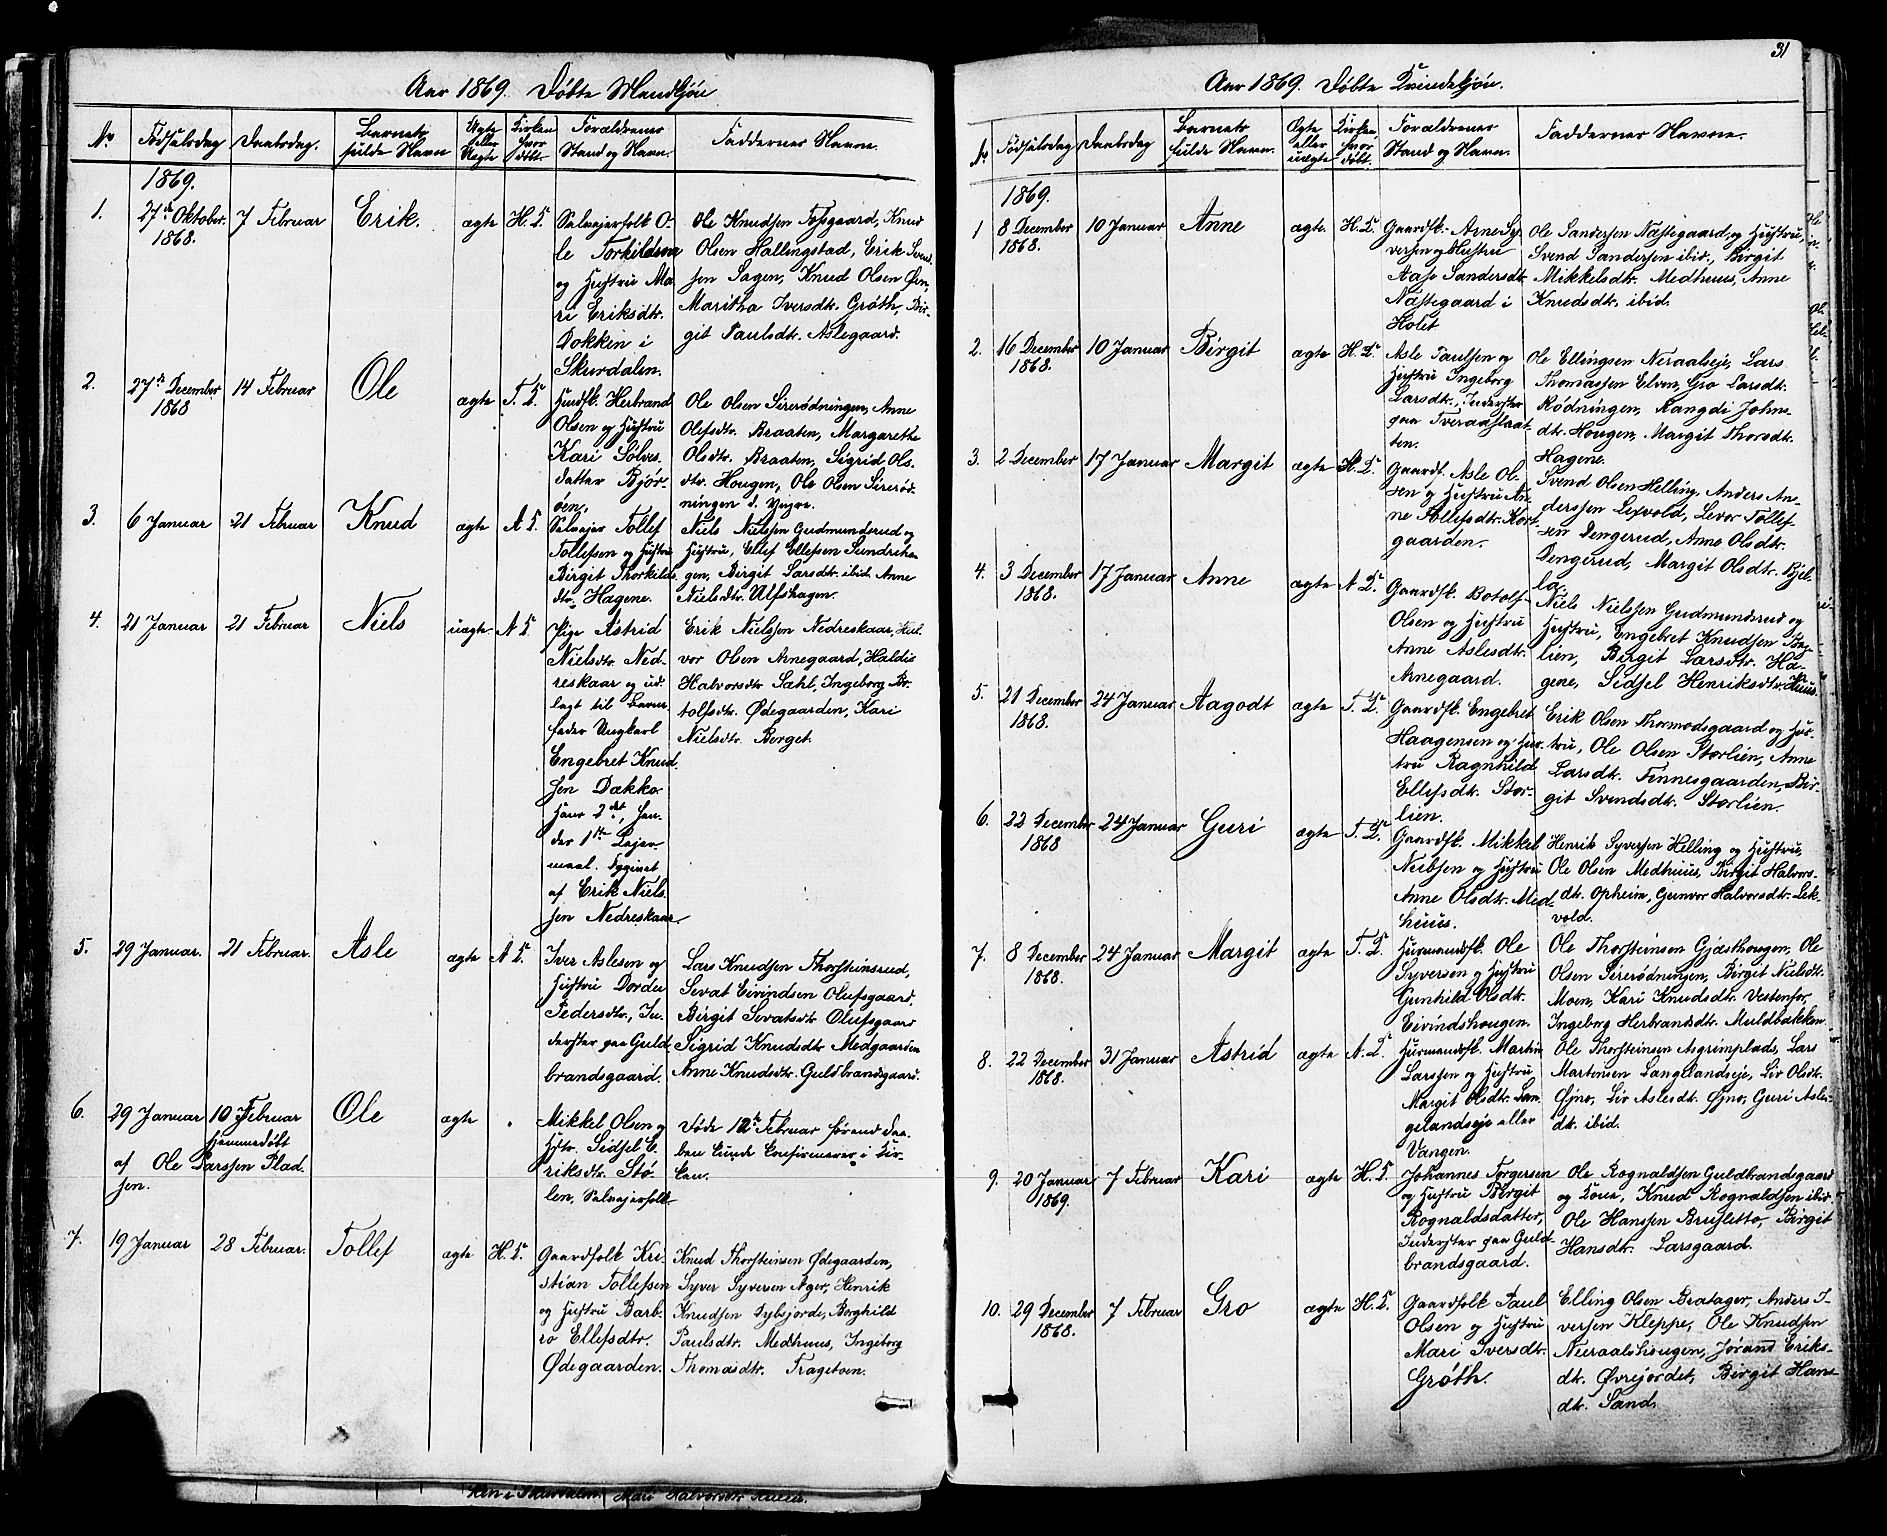 Aar 1869. Døbte Mandkjøn
No
Fødselsdag
Daabsdag.
Barnets fulde Navn
Ægte eller Uægte
Kirken hvor døbt.
Forældrenes Stand og Navn.
Faddernes Navne.
1869.
1.
27de Oktober. 1868.
7 Februar
Erik.
ægte
H. K.
Selveierfolk O-
le Torkildsen
og Hustru Ma
ri Eriksdtr.
Dokken i
Skurdalen.
Ole Knudsen Tofsgaard, Knud
Olsen Hallingstad, Erik Svend
sen Sagen, Knud Olsen Øen,
Maritha Iversdtr. Grøth, Bir-
git Paulsdtr. Aslegaard.
2.
27de December 1868
14 Februar
Ole
ægte
T. K.
Husfk. Herbrand
Olsen og Hustru
Kari Sølves
datter Bjør-
øen.
Ole Olsen Sirerødningen, Anne
Olefsdtr. Braaten, Margarethe
Olsdtr. Braaten, Sigrid Ols
dtr. Hougen, Ole Olsen Sirerød-
ningen d. Yngre.
3.
6 Januar
21 Februar
Knud
ægte
A K.
Selveier Tollef
Tollefsen og Hustru
Birgit Thorkilds
dtr. Hagene.
Niels Nielsen Gudmundsrud og
Hustru, Ellef Ellefsen Sundreha
gen, Birgit Larsdtr. ibid. Anne
Nielsdtr. Ulfshagen.
4.
21 Januar
21 Februar
Niels
uægte
A K.
Pige Astrid
Nielsdtr. Ned-
reskaar og ud
lagt til Barne
fader Ungkarl
Engebret Knud
sen Dækko
Hans 2det, hen-
des 1ste Leier
maal. Opgivet
af Erik Niels
sen Nedreskaar
Erik Nielsen Nedreskaar, Hal-
vor Olsen Arnegaard, Haldis
Halvorsdtr Sæhl, Ingeborg Bo
tolfsdtr. Ødegaarden, Kari
Nielsdtr. Berget.
5.
29 Januar.
21 Februar.
Asle
ægte
A K.
Iver Aslesen og
Hustru Dorde
Pedersdtr., In-
derster paa Guld
brandsgaard.
Lars Knudsen Thorsteinsrud,
Sevat Eivindsen Olufsgaard,
Birgit Sevatsdtr Olufsgaard
Sigrid Knudsdtr Medgaarden
Anne Knudsdtr. Guldbrandsgaard.
6.
29 Januar
10 Februar
hjemmedøbt
af Ole Larssen Plad
sen.
Ole
ægte
Mikkel Olsen og
Hstr. Sidsel E
riksdtr. Stø-
len, Selveierfolk
Døde 12te Februar førend Daa
ben kunde Confirmeres i Kir-
ken.
7.
19 Januar
28 Februar.
Tollef
ægte
H. K.
Gaardfolk Kri-
stian Tollefsen
og Hustru Barb-
ro Ellefsdtr.
Ødegaarden.
Knud Thorsteinsen Ødegaarden,
Syver Syversen Ager, Henrik
Knudsen Dybsjorde, Borghild
Paulsdtr. Medhuus, Ingeborg
Thomasdtr. Fragetoen.
31
Aar 1869. Døbte Kvindekjøn.
No
Fødselsdag
Daabsdag
Barnets fulde Navn.
Ægte eller uægte
Kirken, hvor døbt.
Forældrenes Stand og Navn.
Faddernes Navne.
1869.
1
8 December 1868.
10 Januar
Anne
ægte.
H. K.
Gaardfk. Arne Sy
versen og Hustru
Aase Sandersdtr.
Næstegaard i
Holet
Ole Sandersen Næstegaard og Hustru,
Svend Sandersen ibid., Birgit
Mikkelsdtr. Medhuus, Anne
Knudsdtr. ibid.
2.
16 December 1868.
10 Januar
Birgit
ægte
H. K.
Asle Paulsen og
Hustru Ingeborg
Larsdtr., Inderster
paa Tveraaslaat-
ten.
Ole Ellingsen Neraalseje, Lars
Thomassen Elven, Gro Larsdtr.
Rødningen, Rangdi Johns-
dtr. Hougen, Margit Thorsdtr.
Hagene.
3.
2 December
17 Januar
Margit
ægte
H. K.
Gaardf. Asle Ol-
sen og Hustru An-
ne Tollefsdtr. Kort-
gaarden.
Svend Olsen Helling, Anders An-
derssen Lexvold, Levor Tollef-
sen Dengerud, Anne Olsdtr.
Dengerud, Margit Olsdtr. Bjel-
la.
4.
3 December 1868.
17 Januar
Anne
ægte
A K.
Gaardfk. Botolf
Olsen og Hustru
Anne Aslesdtr.
Arnegaard.
Niels Nielssen Gudmundsrud og
Hustru, Engebret Knudsen Tog-
lien, Birgit Larsdtr. Ha-
gene, Sidsel Henriksdtr. Huus.
5.
21 December 1868.
24 Januar
Aagodt
ægte
T. K.
Gaardfk. Engebret
Haagensen og Hus-
tru Ragnhild
Ellefsdtr. Stor-
lien.
Erik Olsen Thormodsgaard og Hus-
tru, Ole Olsen Storlien, Anne
Larsdtr. Finnesgaarden, Bir-
git Svendsdtr. Storlien.
6.
22 December 1868
24 Januar
Guri
ægte
T. K.
Gaardfk. Mikkel
Nielsen og Hustru
Anne Olsdtr. Med-
huus.
Henrik Syversen Helling og Hustru,
Ole Olsen Medhuus, Birgit Halvors-
dtr. Opheim, Gunvor Halvorsdtr. Lek-
vold.
7.
8 December 1868.
24 Januar
Margit
ægte
T. K.
Husmandsfk. Ole
Syversen og Hustru
Gunhild Olsdtr.
Eivindshougen.
Ole Thorsteinsen Gjæsthougen, Ole
Olsen Sirerødningen, Birgit Nielsdtr.
Moen, Kari Knudsdtr. Vestenfor,
Ingeborg Herbrandsdtr. Muldbakken.
8.
22 December 1868.
31 Januar
Astrid
ægte
A. K.
Husmandsfk. Martin
Larssen og Hustru
Margit Olsdtr. Lan-
gelandseje eller
Vangen.
Ole Thorsteinsen Asgrimplads, Lars
Martensen Langelandseje, Liv Olsdtr.
Øjno, Liv Aslesdtr. Øjno, Guri Asles-
dtr. ibid.
9.
20 Januar 1869.
7 Februar
Kari
ægte
H. K.
Johannes Torgersen
og Hustru Birgit
Rognaldsdatter,
Inderster paa Guld-
brandsgaard.
Ole Rognaldsen Guldbrandsgaard
og Kone, Knud Rognaldsen ibid.
Ole Hanssen Brusletto, Birgit
Hansdtr. Larsgaard.
10.
29 December 1868.
7 Februar
Gro
ægte
H. K.
Gaardfolk Paul
Olsen og Hustru
Mari Iversdtr.
Grøth.
Elling Olsen Bratager, Anders I-
versen Kleppe, Ole Knudsen
Neraalshougen, Jørand Eriks-
dtr. Øvrejordet, Birgit Hans-
dtr. Sand.